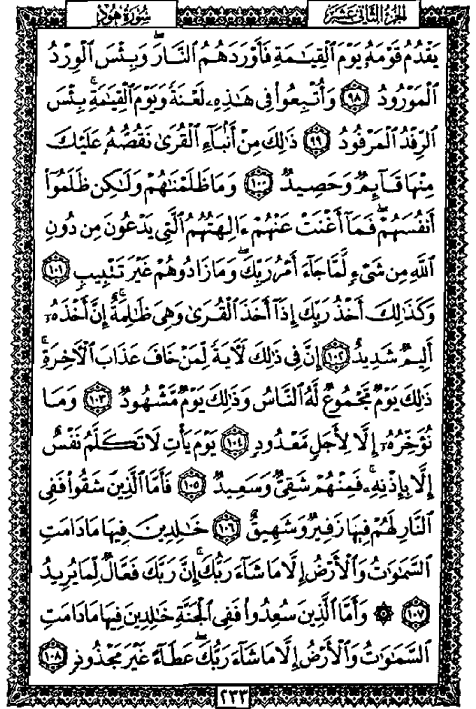 الجزء الثاني عشر
سورة هود
يَقْدُمُ قَوْمَهُۥ يَوْمَ ٱلْقِيَٰمَةِ فَأَوْرَدَهُمُ ٱلنَّارَ ۖ وَبِئْسَ ٱلْوِرْدُ
ٱلْمَوْرُودُ ٩٨ وَأُتْبِعُوا۟ فِى هَٰذِهِۦ لَعْنَةً وَيَوْمَ ٱلْقِيَٰمَةِ ۚ بِئْسَ
ٱلرِّفْدُ ٱلْمَرْفُودُ ٩٩ ذَٰلِكَ مِنْ أَنۢبَآءِ ٱلْقُرَىٰ نَقُصُّهُۥ عَلَيْكَ ۖ
مِنْهَا قَآئِمٌ وَحَصِيدٌ ١٠٠ وَمَا ظَلَمْنَٰهُمْ وَلَٰكِن ظَلَمُوٓا۟
أَنفُسَهُمْ ۖ فَمَآ أَغْنَتْ عَنْهُمْ ءَالِهَتُهُمُ ٱلَّتِى يَدْعُونَ مِن دُونِ
ٱللَّهِ مِن شَىْءٍ لَّمَّا جَآءَ أَمْرُ رَبِّكَ ۖ وَمَا زَادُوهُمْ غَيْرَ تَتْبِيبٍ ١٠١
وَكَذَٰلِكَ أَخْذُ رَبِّكَ إِذَآ أَخَذَ ٱلْقُرَىٰ وَهِىَ ظَٰلِمَةٌ ۚ إِنَّ أَخْذَهُۥٓ
أَلِيمٌ شَدِيدٌ ١٠٢ إِنَّ فِى ذَٰلِكَ لَءَايَةً لِّمَنْ خَافَ عَذَابَ ٱلْءَاخِرَةِ ۚ
ذَٰلِكَ يَوْمٌ مَّجْمُوعٌ لَّهُ ٱلنَّاسُ وَذَٰلِكَ يَوْمٌ مَّشْهُودٌ ١٠٣ وَمَا
نُؤَخِّرُهُۥٓ إِلَّا لِأَجَلٍ مَّعْدُودٍ ١٠٤ يَوْمَ يَأْتِ لَا تَكَلَّمُ نَفْسٌ
إِلَّا بِإِذْنِهِۦ ۚ فَمِنْهُمْ شَقِىٌّ وَسَعِيدٌ ١٠٥ فَأَمَّا ٱلَّذِينَ شَقُوا۟ فَفِى
ٱلنَّارِ لَهُمْ فِيهَا زَفِيرٌ وَشَهِيقٌ ١٠٦ خَٰلِدِينَ فِيهَا مَا دَامَتِ
ٱلسَّمَٰوَٰتُ وَٱلْأَرْضُ إِلَّا مَا شَآءَ رَبُّكَ ۚ إِنَّ رَبَّكَ فَعَّالٌ لِّمَا يُرِيدُ
١٠٧ ۞ وَأَمَّا ٱلَّذِينَ سُعِدُوا۟ فَفِى ٱلْجَنَّةِ خَٰلِدِينَ فِيهَا مَا دَامَتِ
ٱلسَّمَٰوَٰتُ وَٱلْأَرْضُ إِلَّا مَا شَآءَ رَبُّكَ ۖ عَطَآءً غَيْرَ مَجْذُوذٍ ١٠٨
٢٣٣